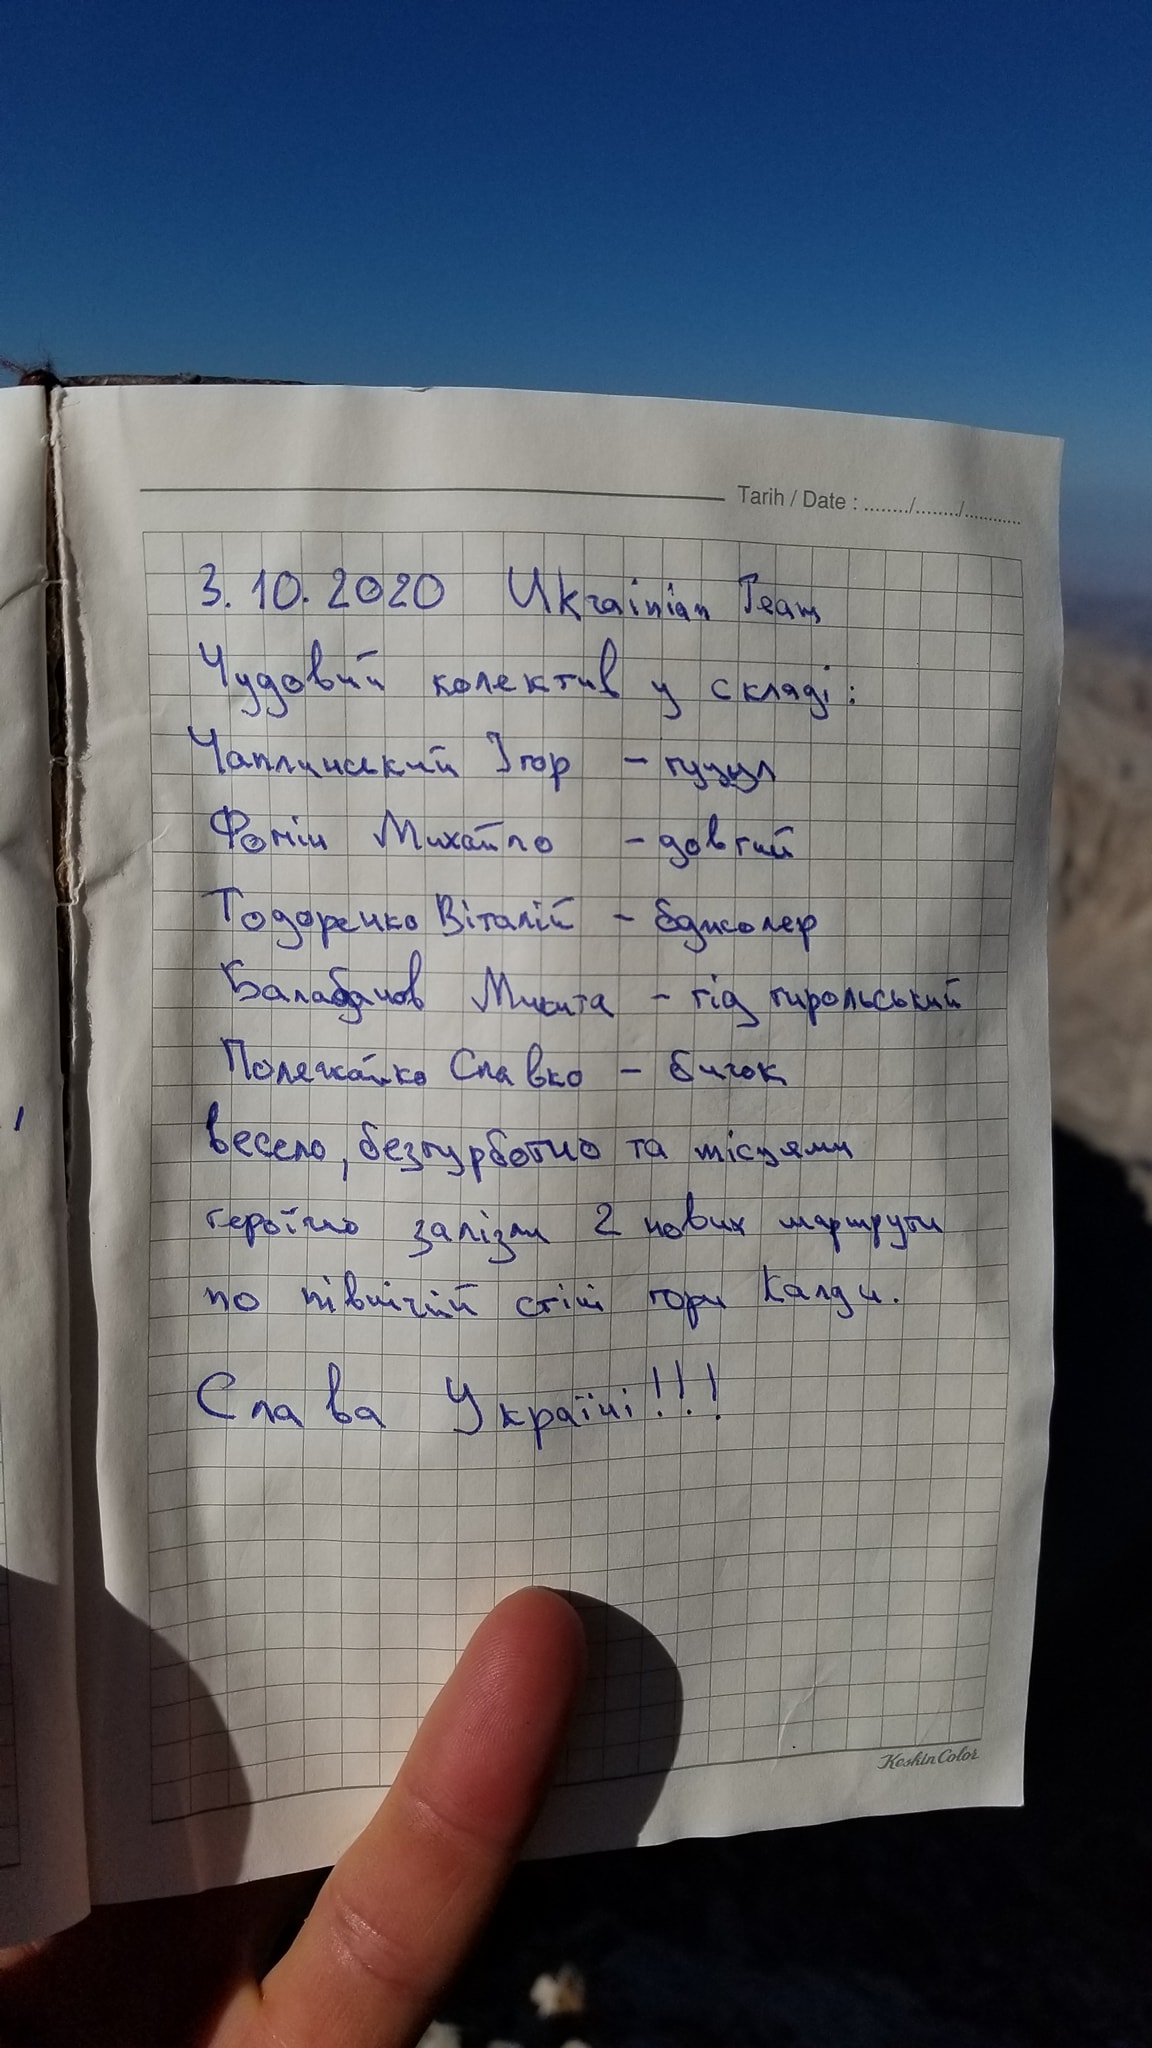 Tarih / Date : ......../......../............
3.10.2020 Ukrainian Team
Чудовий колектив у складі:
Чаплинський Ігор – гуцул
Фомін Михайло – довгий
Тодоренко Віталій – бджоляр
Балабанов Микита – гід тирольський
Полежайко Славко – бичок
весело, безтурботно та місцями
героїчно залізли 2 нових маршрути
по північній стіні гори Калди.
Слава Україні!!!
KeskinColor